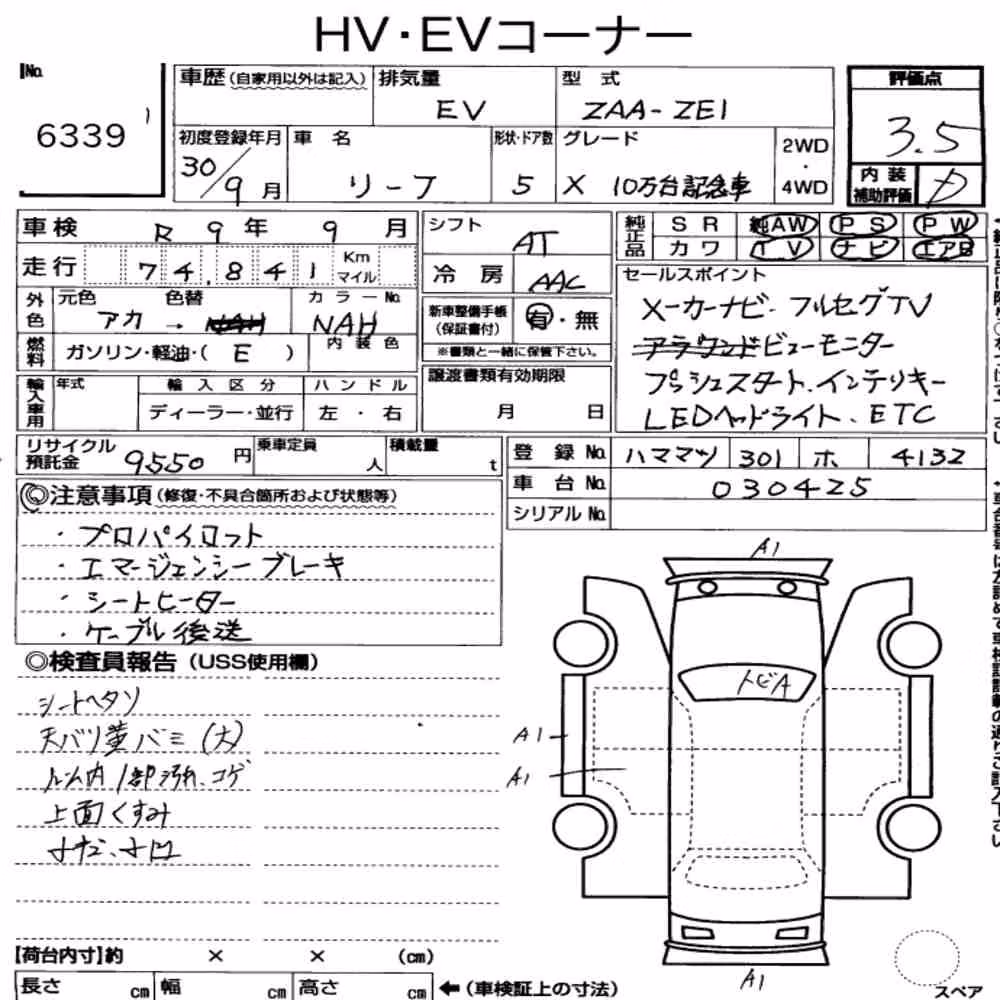 HV・EVコーナー
No.
6339
車歴 (自家用以外は記入)
排気量
EV
型 式
ZAA-ZE1
評価点
3.5
初度登録年月
30/9月
車 名
リーフ
形状・ドア数
5
グレード
X 10万台記念車
2WD
・
4WD
内装
補助評価
D
車検 R 9年 9月
走行 74,841 Km マイル
外色
元色 色替
アカ →
カラーNo.
NAH
燃料
ガソリン・軽油・( E )
内装色
輸入車用
年式
輸入区分
ディーラー・並行
ハンドル
左・右
シフト
AT
冷房
AAC
新車整備手帳
(保証書付)
有・無
※書類と一緒に保管下さい。
譲渡書類有効期限
月 日
純正品
SR 純AW PS PW
カワ TV ナビ エアB
セールスポイント
メーカーナビ・フルセグTV
アラウンドビューモニター
プッシュスタート.インテリキー
LEDヘッドライト、ETC
リサイクル
預託金
9550円
乗車定員
人
積載量
t
登録No. ハママツ 301 ホ 4132
車台No. 030425
シリアルNo.
◎注意事項(修復・不具合箇所および状態等)
・プロパイロット
・エマージェンシーブレーキ
・シートヒーター
・ケーブル後送
◎検査員報告(USS使用欄)
シートヘタリ
(大)
内1部汚れ、コゲ
上面くすみ
A1
トビA
A1
A1
A1
スペア
【荷台内寸】約 × × (cm)
長さ cm 幅 cm 高さ cm ←(車検証上の寸法)